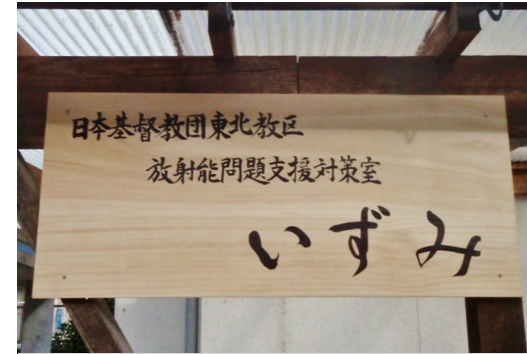 日本基督教団東北教区
放射能問題支援対策室
いずみ